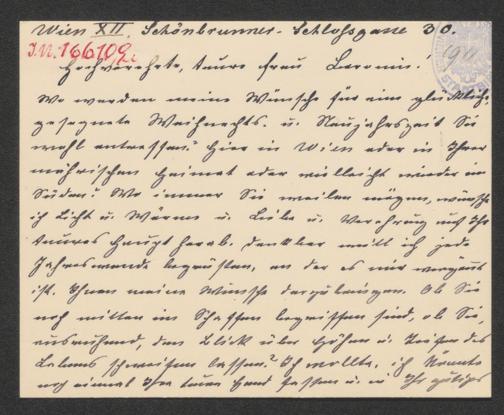 Wien XII. Schönbrunner-Schloßgasse 30.
I.N. 166109
1911
Hochverehrte, teure Frau Baronin!
Wo werden meine Wünsche für eine glücklich-
gesegnete Weihnachts- u. Neujahrszeit Sie
wohl antreffen? Hier in Wien oder in Ihrer
mährischen Heimat oder vielleicht wieder im
Süden? Wo immer Sie weilen mögen, wünsche
ich Licht u. Wärme u. Liebe u. Verehrung auf Ihr
teures Haupt herab. Dankbar will ich jede
Jahreswende begrüßen, an der es mir vergönnt
ist, Ihnen meine Wünsche darzubringen. Ob Sie
noch mitten im Schaffen begriffen sind, ob Sie,
ausruhend, den Blick über Höhen u. Tiefen des
Lebens schweifen lassen? Ich wollte, ich könnte
noch einmal Ihre teure Hand fassen u. in Ihr gütiges